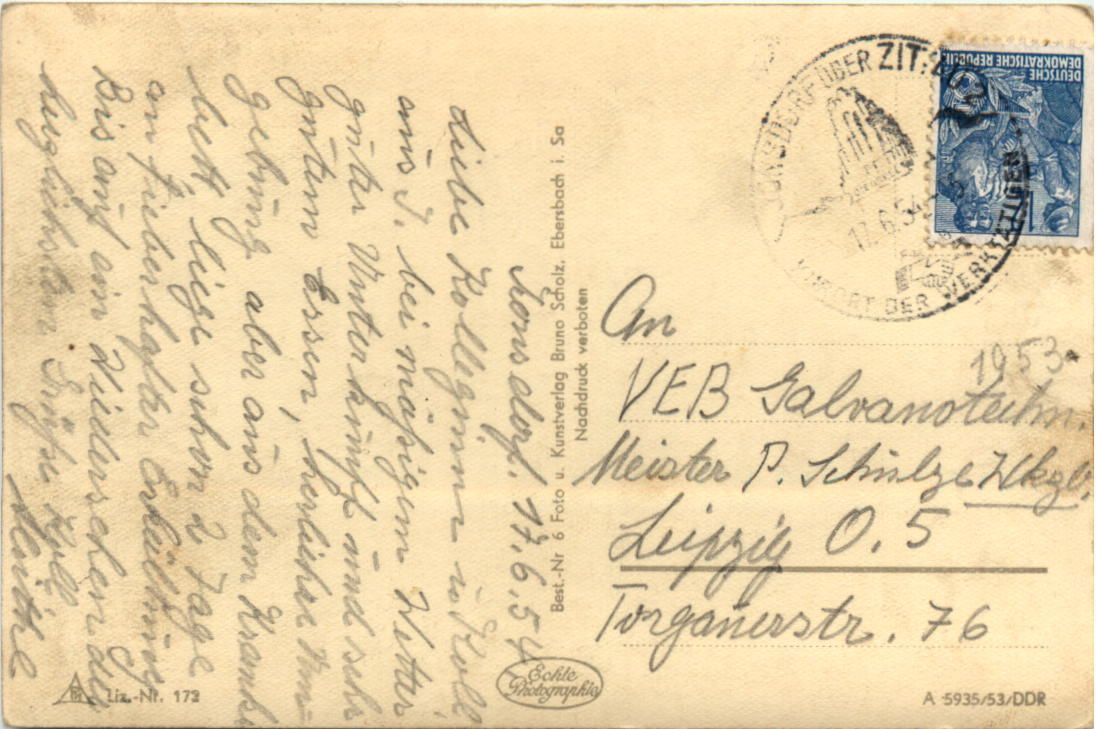 Jonsdorf. 17.6.54
Liebe Kolleginnen u. Koll.
aus J. bei mäßigem Wetter
guter Unterkunft und sehr
gutem Essen, herlicher Um-
gebung aber aus dem Kranken
bett, liege schon 2 Tage
an fieberhafter Erkältung
Bis auf ein Wiedersehen die
herzlichsten Grüße Koll.
Best.-Nr 6 Foto u. Kunstverlag Bruno Scholz, Ebersbach i. Sa
Nachdruck verboten
Echte
Photographie
Liz.-Nr. 172
JONSDORF ÜBER ZITTAU 2
17.6.54
KURORT DER WERKTÄTIGEN
DEUTSCHE
DEMOKRATISCHE REPUBLIK
An
1953
VEB Galvanotechn.
Meister P. Schulze Wkzb.
Leipzig O. 5
Torgauerstr. 76
A 5935/53/DDR